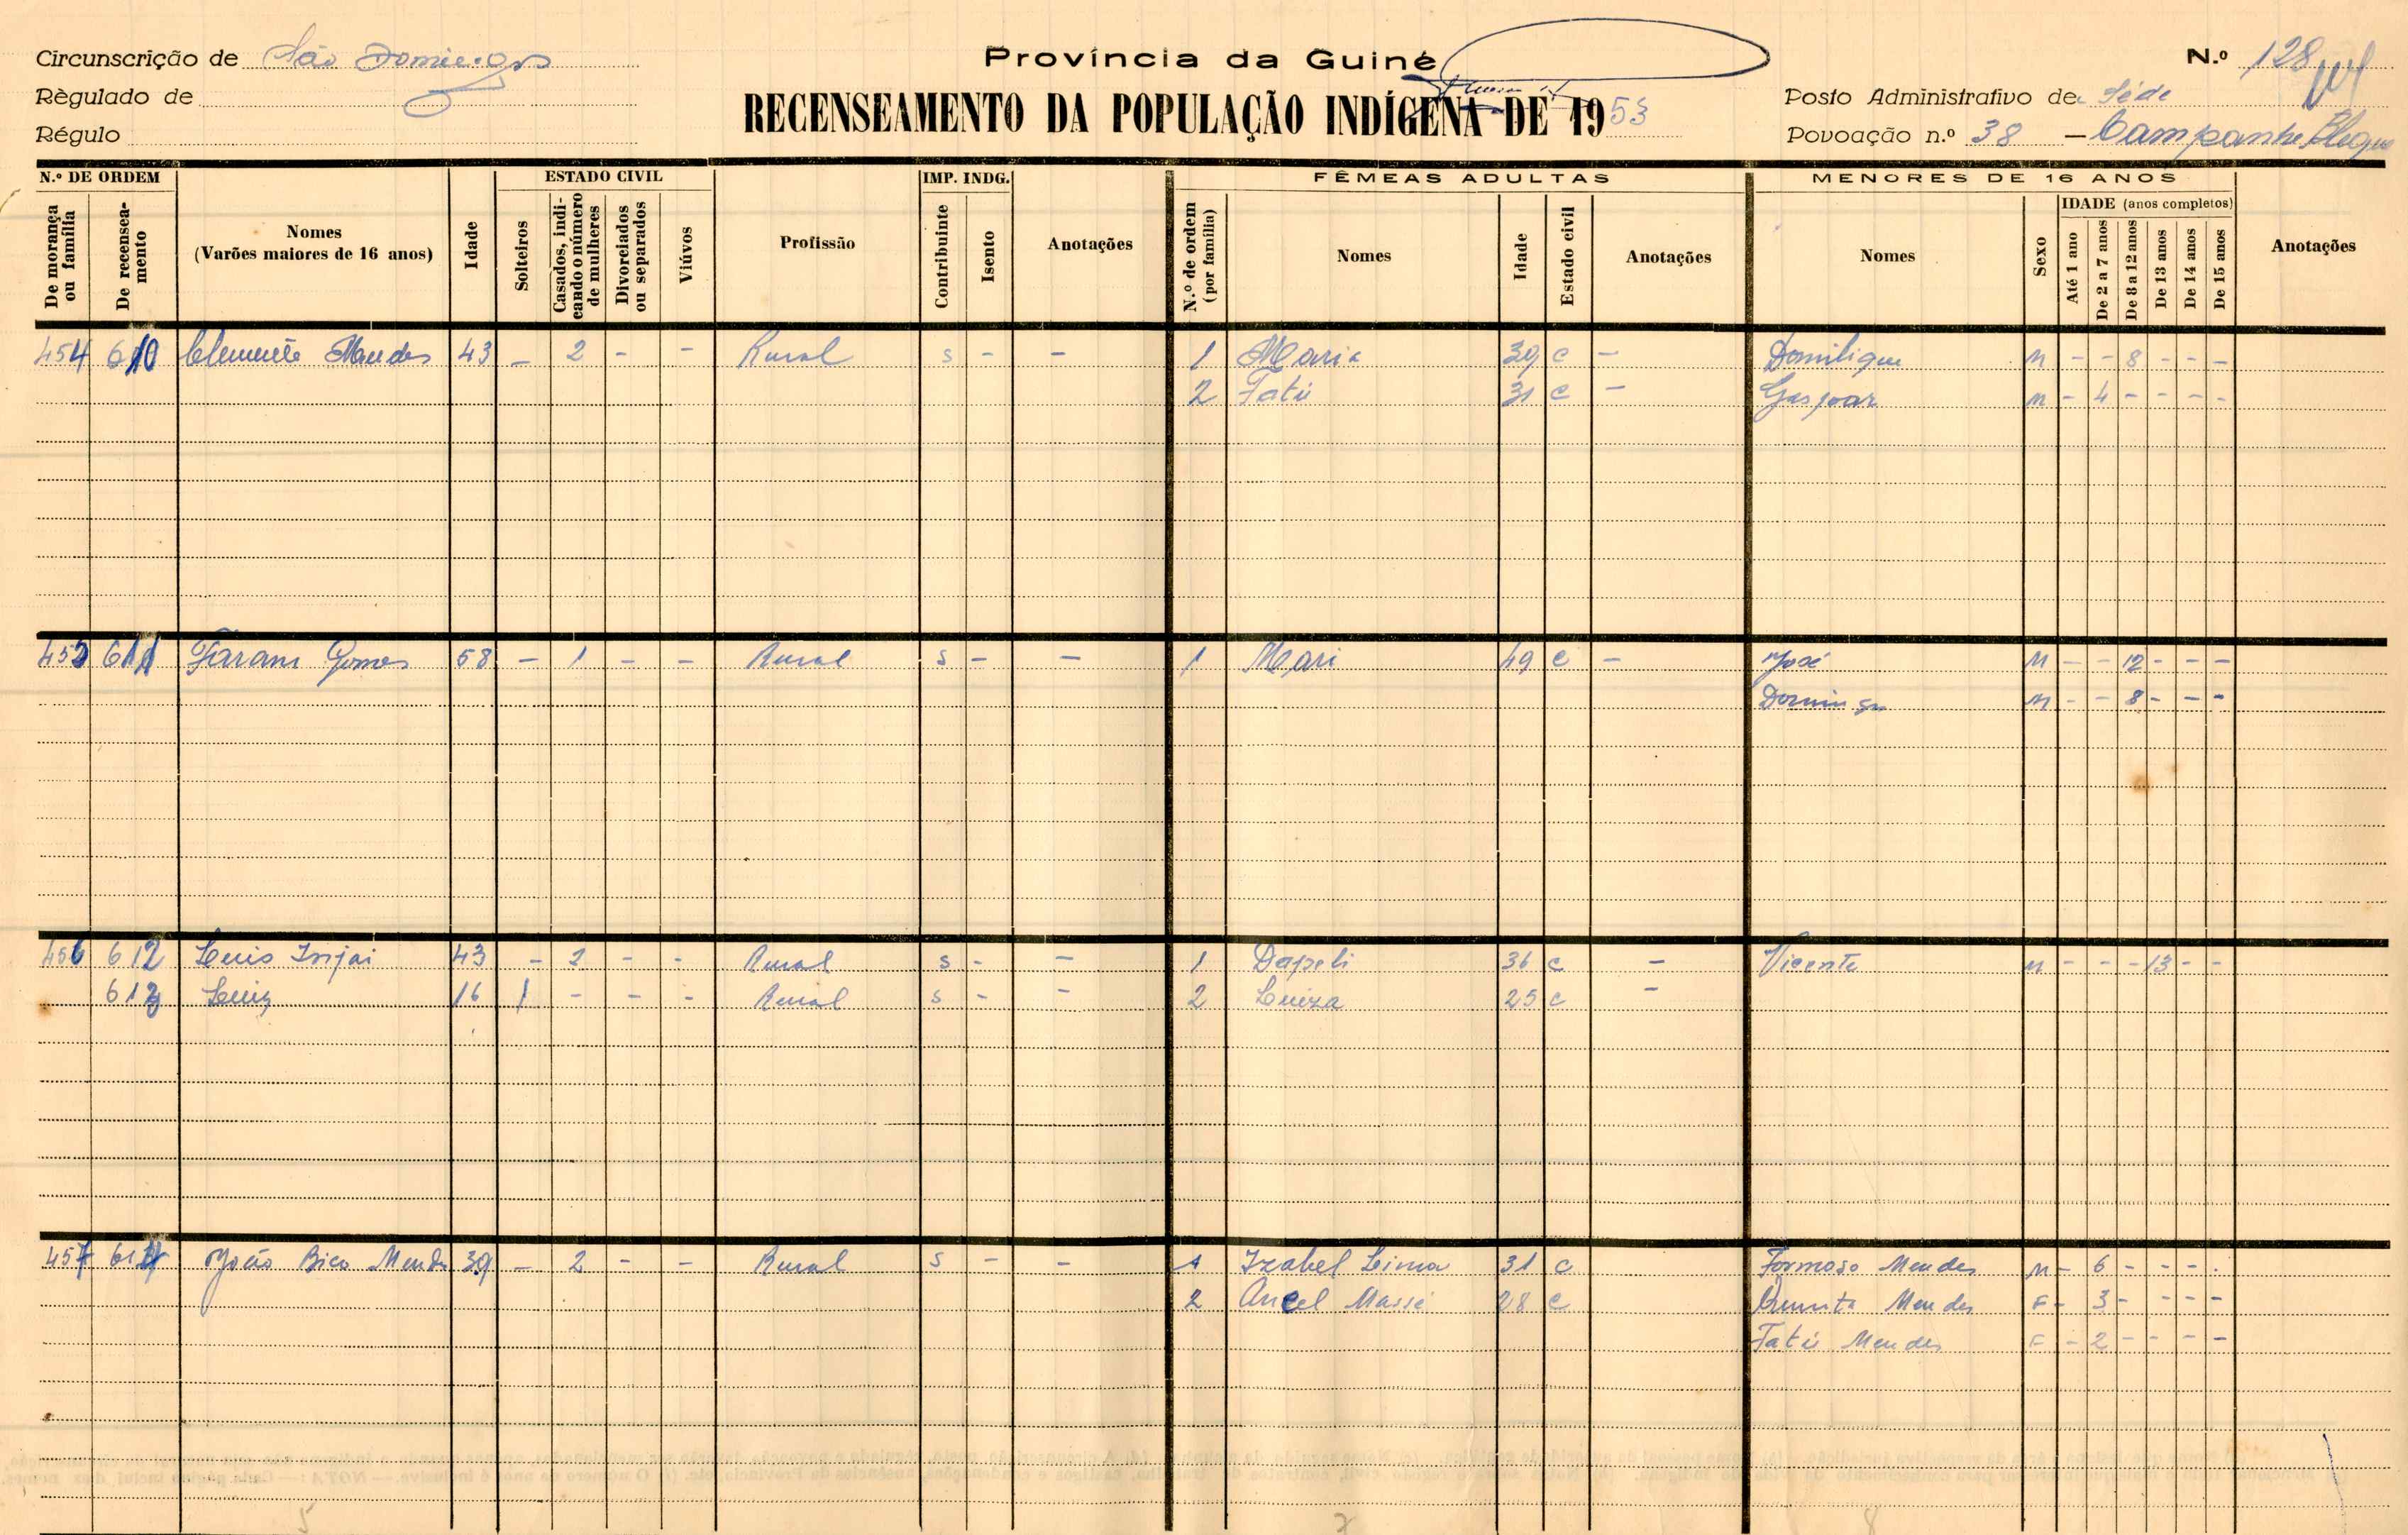 Circunscrição de São Domingos
Règulado de
Régulo
Província da Guiné
RECENSEAMENTO DA POPULAÇÃO INDÍGENA DE 1953
N.º 128
Posto Administrativo de Séde
Povoação n.º 38 – Campanhe
N.º DE ORDEM
De morança ou família
De recenseamento
Nomes
(Varões maiores de 16 anos)
Idade
ESTADO CIVIL
Solteiros
Casados, indicando o número de mulheres
Divorciados ou separados
Viúvos
Profissão
IMP. INDG.
Contribuinte
Isento
Anotações
FÊMEAS ADULTAS
N.º de ordem (por família)
Nomes
Idade
Estado civil
Anotações
MENORES DE 16 ANOS
Nomes
Sexo
IDADE (anos completos)
Até 1 ano
De 2 a 7 anos
De 8 a 12 anos
De 13 anos
De 14 anos
De 15 anos
Anotações
454 610 Clemente Mendes 43 – 2 – – Rural s – – 1 Maria 39 c – Domilique M – – 8 – – –
2 Fatú 31 c – Gaspar M – 4 – – – –
455 611 Faram Gomes 58 – 1 – – Rural s – – 1 Mari 49 c – José M – – 12 – – –
Domingu M – – 8 – – –
456 612 Luis Injai 43 – 2 – – Rural s – – 1 Dapeli 36 c – Vicente M – – – 13 – –
613 Luiz 16 1 – – – Rural s – – 2 Luiza 25 c –
457 614 João Bico Mendes 39 – 2 – – Rural s – – 1 Izabel Lima 31 c Formoso Mendes M – 6 – – – –
2 Ancel Massé 28 c Mendes F – 3 – – – –
Fatú Mendes F – 2 – – – –